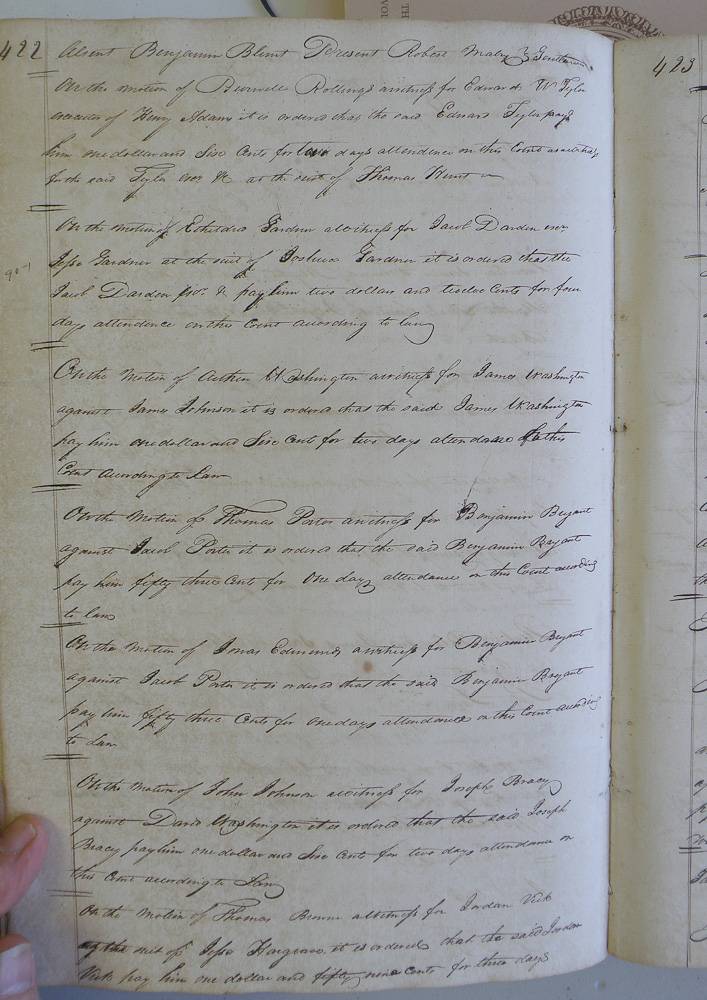 422
423
Absent Benjamin Blunt Present Robert Mabry Gentlemen
On the motion of Burwell Rollings a witness for Edward W Tyler
executor of Henry Adams it is ordered that the said Edward Tyler pay
him one dollar and Six Cents for two days attendence on this Court as a witness
for the said Tyler exor &c at the suit of Thomas Hunt
On the motion of Etheldred Gardner a witness for Jacob Darden exor
Jesse Gardner at the suit of Joshua Gardner it is ordered that the
Jacob Darden Exor. & pay him two dollars and twelve Cents for four
days attendence on this Court according to law
On the Motion of Washington a witness for James Washington
against James Johnson it is ordered that the said James Washington
pay him one dollar and Six Cents for two days attendance this
Court According to Law
On the Motion of Thomas Porter a witness for Benjamin Bryant
against Jacob Porter it is ordered that the said Benjamin Bryant
pay him fifty three Cents for One days attendance on this Court according
to law
On the Motion of Jonas Edmunds a witness for Benjamin Bryant
against Jacob Porter it is ordered that the said Benjamin Bryant
pay him fifty three Cents for one days attendance on this Court according
to Law
On the Motion of John Johnson a witness for Joseph Bracy
against David Washington it is ordered that the said Joseph
Bracy pay him one dollar and Six Cents for two days attendance on
this Court according to Law
On the Motion of Thomas Browne a witness for Jordan Vick
suit of Jesse Hargrave it is ordered that the said Jordan
Vick pay him one dollar and fifty nine Cents for three days